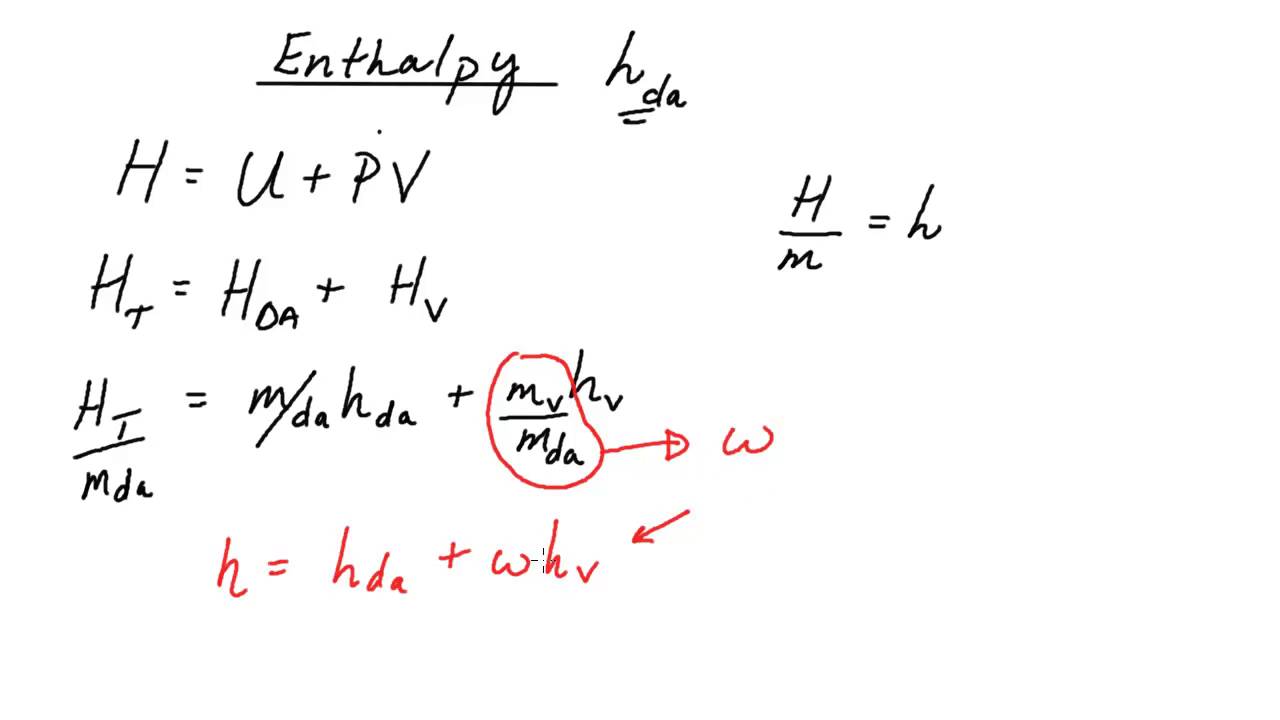 Enthalpy h_da
H = U + PV
H/m = h
H_T = H_DA + H_V
H_T/m_da = m_da h_da + m_v/m_da h_v
→ ω
h = h_da + ωh_v